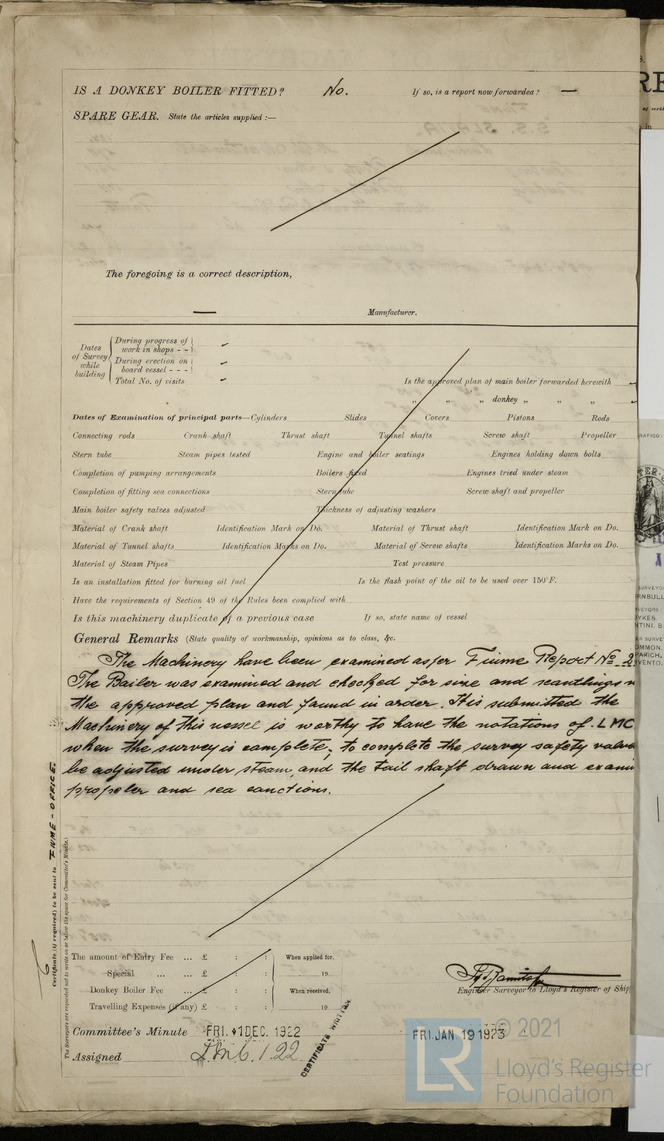 IS A DONKEY BOILER FITTED? No. If so, is a report now forwarded? —
SPARE GEAR. State the articles supplied :—
The foregoing is a correct description,
— Manufacturer.
Dates of Survey while building
During progress of work in shops - -
During erection on board vessel - - -
Total No. of visits
Is the approved plan of main boiler forwarded herewith
" " " donkey " " "
Dates of Examination of principal parts—Cylinders Slides Covers Pistons Rods
Connecting rods Crank shaft Thrust shaft Tunnel shafts Screw shaft Propeller
Stern tube Steam pipes tested Engine and boiler seatings Engines holding down bolts
Completion of pumping arrangements Boilers fixed Engines tried under steam
Completion of fitting sea connections Stern tube Screw shaft and propeller
Main boiler safety valves adjusted Thickness of adjusting washers
Material of Crank shaft Identification Mark on Do. Material of Thrust shaft Identification Mark on Do.
Material of Tunnel shafts Identification Marks on Do. Material of Screw shafts Identification Marks on Do.
Material of Steam Pipes Test pressure
Is an installation fitted for burning oil fuel Is the flash point of the oil to be used over 150°F.
Have the requirements of Section 49 of the Rules been complied with
Is this machinery duplicate of a previous case If so, state name of vessel
General Remarks (State quality of workmanship, opinions as to class, &c.
The Machinery have been examined as per Fiume Report No. 2
The Bailer was examined and checked for size and scantlings
the approved plan and found in order. It is submitted the
Machinery of this vessel is worthy to have the notations of LMC
when the survey is complete; to complete the survey safety valve
be adjusted under steam, and the tail shaft drawn and exami
propeler and sea conctions.
Certificate (if required) to be sent to FIUME - OFFICE.
The Surveyors are requested not to write on or below the space for Committee's Minute.
The amount of Entry Fee ... £ : : When applied for,
Special ... ... £ : : 19
Donkey Boiler Fee £ : : When received,
Travelling Expenses (if any) £ : : 19
Engineer Surveyor to Lloyd's Register of Ship
Committee's Minute FRI. 1 DEC. 1922 FRI. JAN 19 1923
Assigned
CERTIFICATE WRITTEN
© 2021
LR Lloyd's Register
Foundation